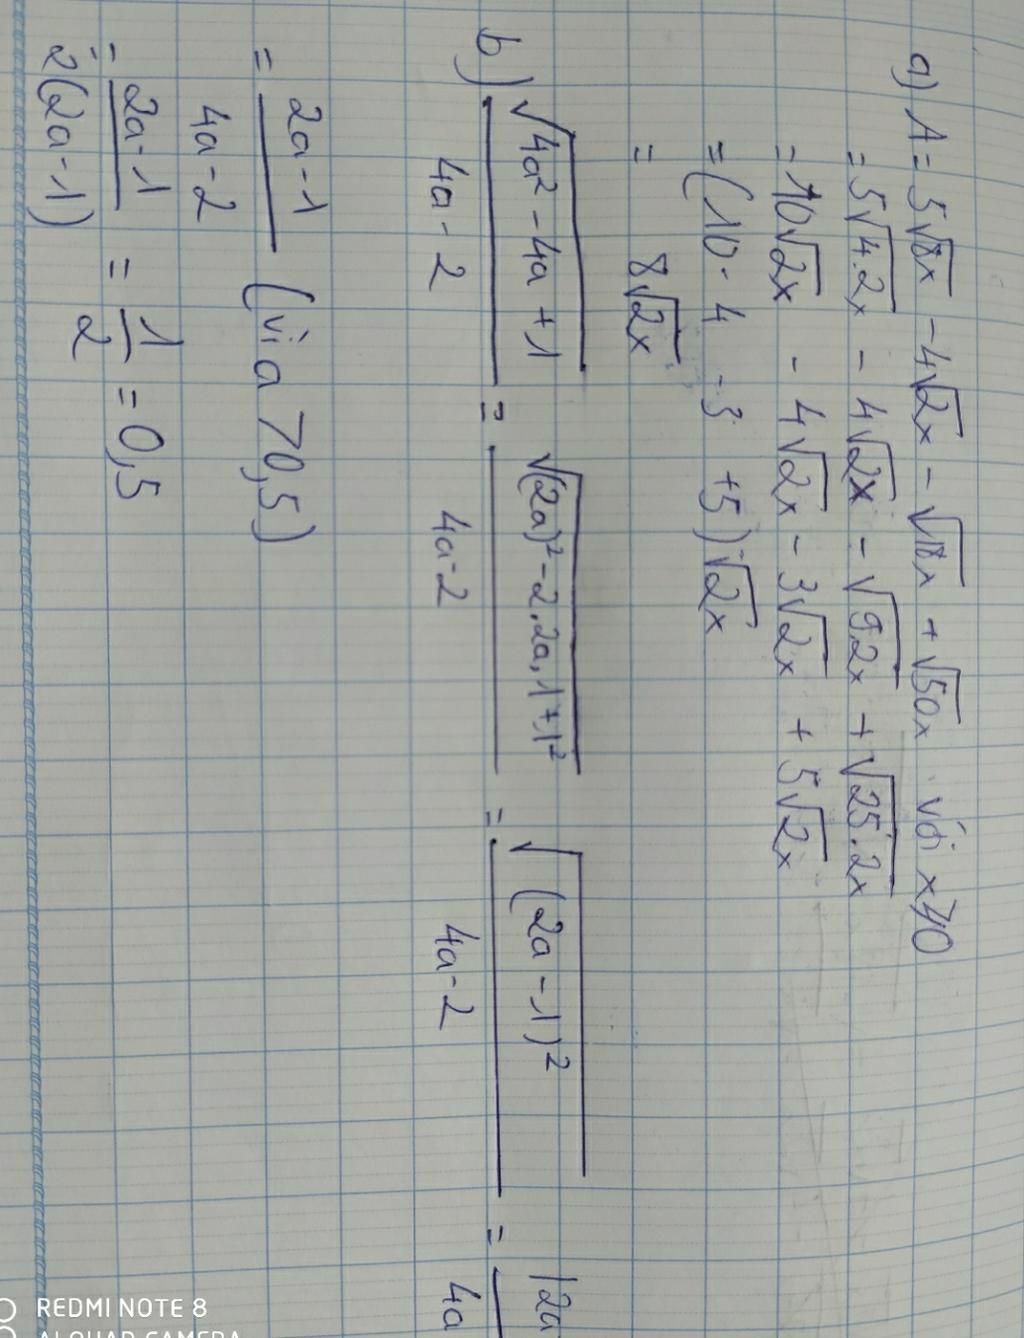 a) A = 5√8x - 4√2x - √18x + √50x với x≥0
= 5√4.2x - 4√2x - √9.2x + √25.2x
= 10√2x - 4√2x - 3√2x + 5√2x
= (10 - 4 - 3 + 5)√2x
= 8√2x
b) √4a² - 4a + 1 / 4a - 2 = √(2a)² - 2.2a.1 + 1² / 4a - 2 = √(2a - 1)² / 4a - 2 = |2a / 4a
= 2a - 1 / 4a - 2 (vì a > 0,5)
= 2a - 1 / 2(2a - 1) = 1 / 2 = 0,5
REDMI NOTE 8